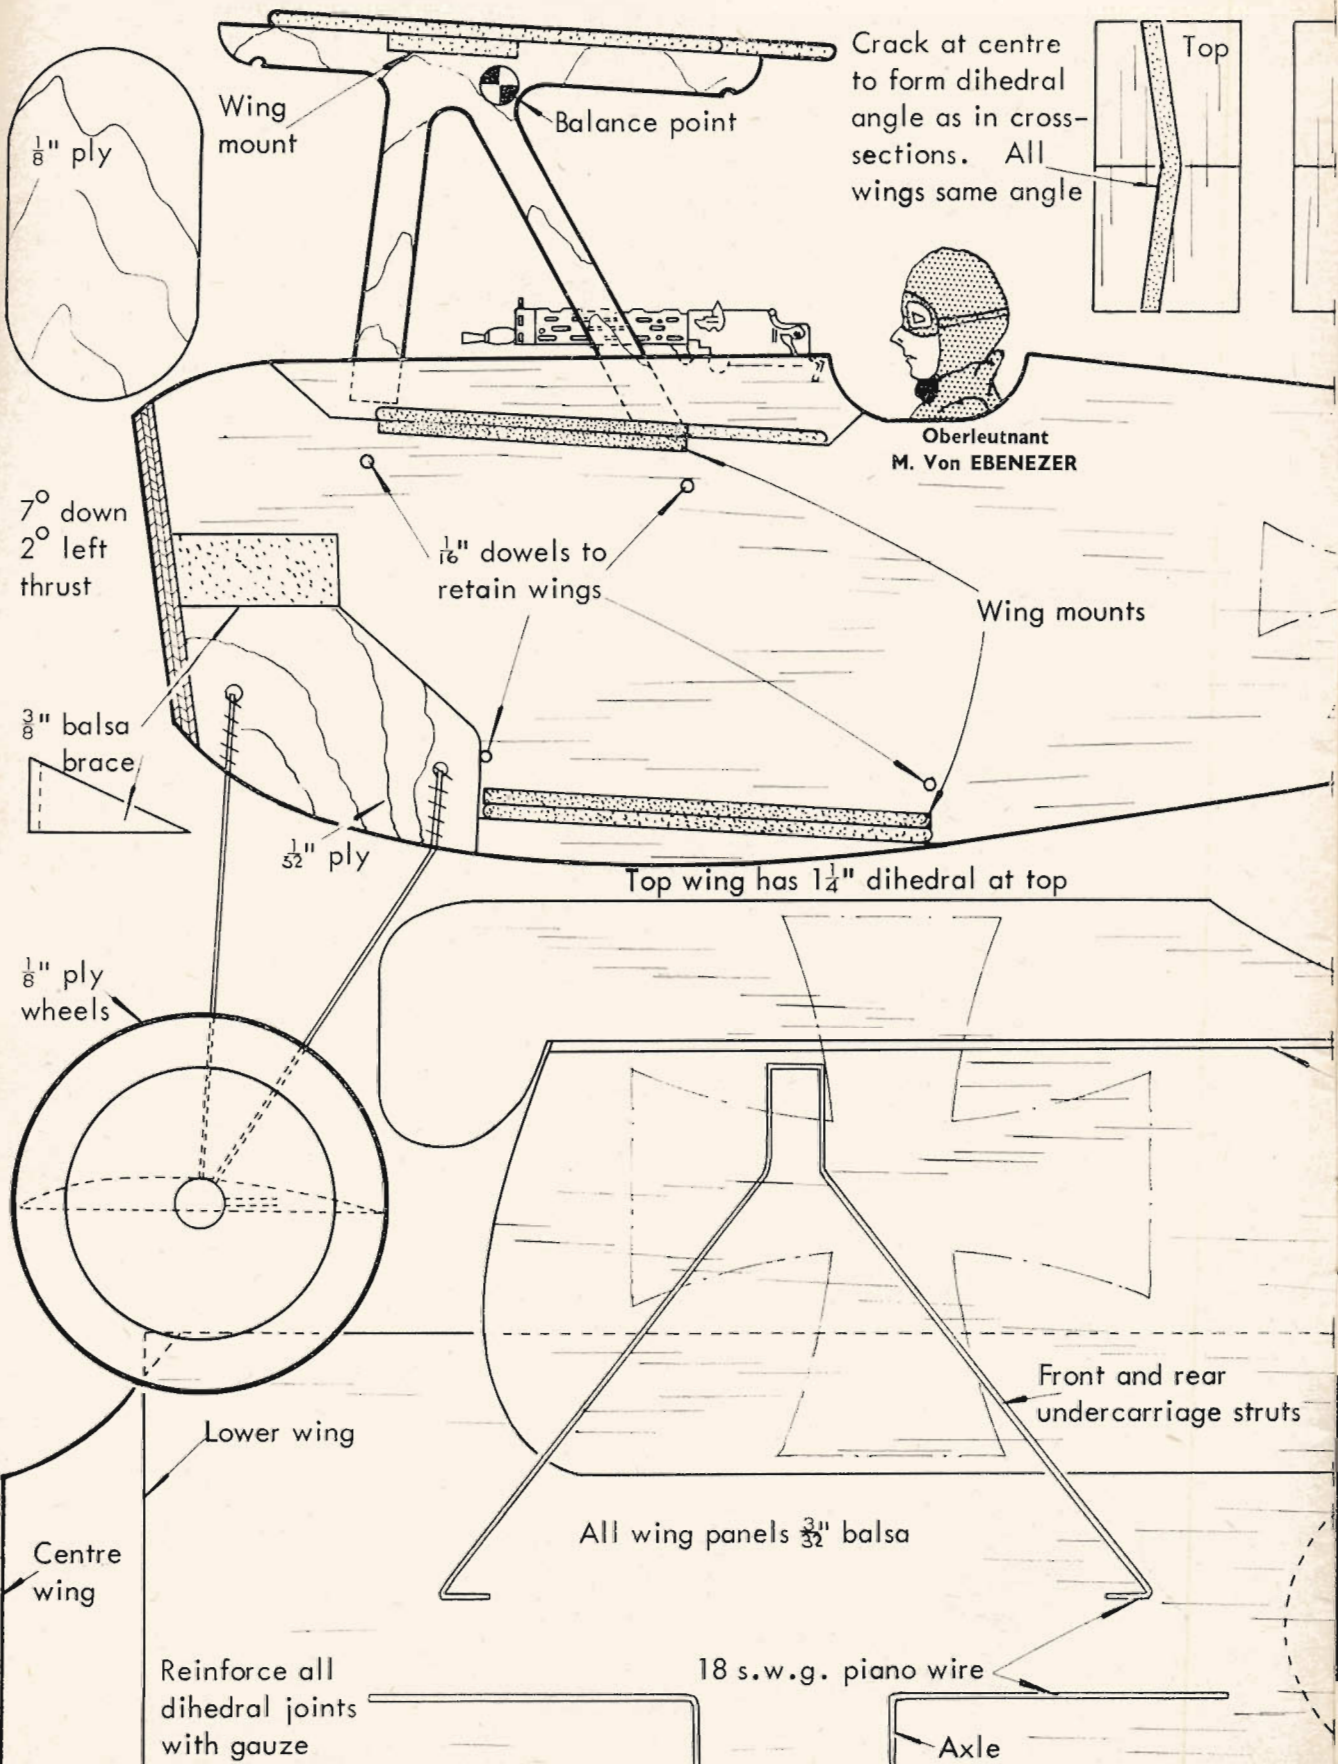 Crack at centre
to form dihedral
angle as in cross-
sections. All
wings same angle
Top
Wing
mount
Balance point
1/8" ply
Oberleutnant
M. Von EBENEZER
7° down
2° left
thrust
1/16" dowels to
retain wings
Wing mounts
3/8" balsa
brace
1/32" ply
Top wing has 1 1/4" dihedral at top
1/8" ply
wheels
Front and rear
undercarriage struts
Lower wing
All wing panels 3/32" balsa
Centre
wing
Reinforce all
dihedral joints
with gauze
18 s.w.g. piano wire
Axle